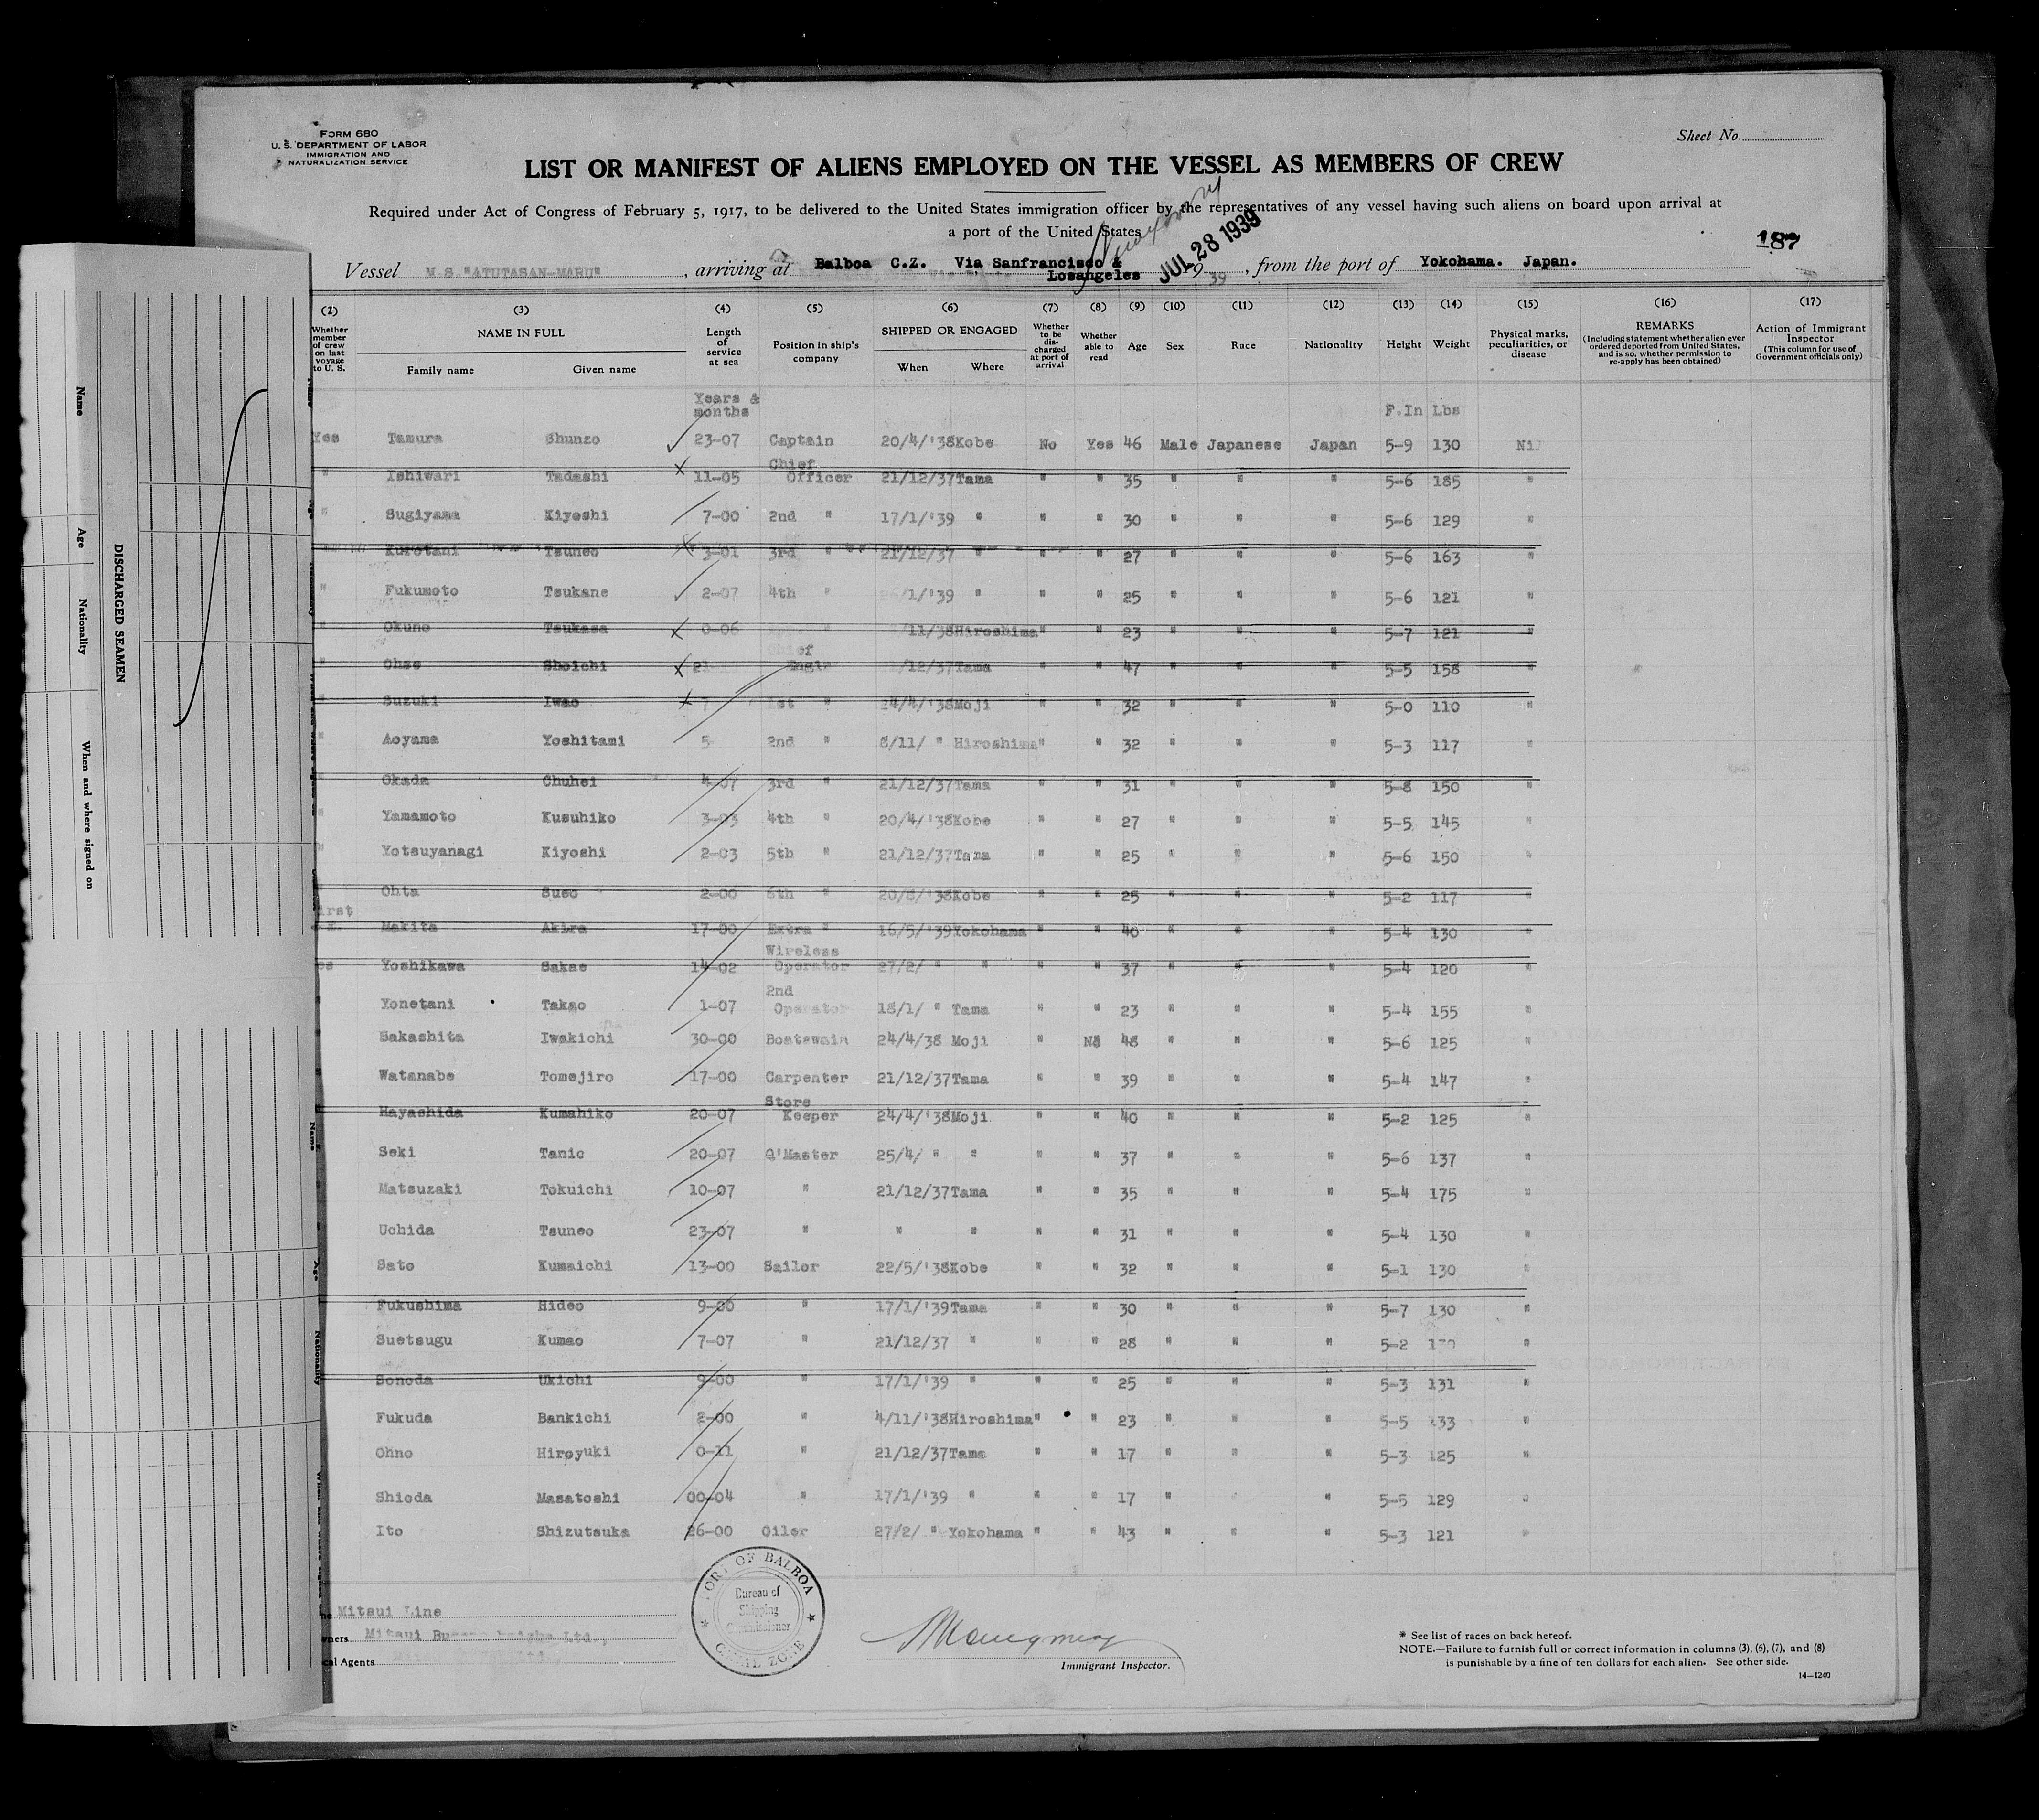 FORM 680
U. S. DEPARTMENT OF LABOR
IMMIGRATION AND
NATURALIZATION SERVICE
Sheet No.
LIST OR MANIFEST OF ALIENS EMPLOYED ON THE VESSEL AS MEMBERS OF CREW
Required under Act of Congress of February 5, 1917, to be delivered to the United States immigration officer by the representatives of any vessel having such aliens on board upon arrival at
a port of the United States
187
Vessel M.S."ATUTASAN-MARU", arriving at Balboa C.Z. Via Sanfrancisco & Losangeles JUL 28 1939, 1939, from the port of Yokohama. Japan.
(2) (3) (4) (5) (6) (7) (8) (9) (10) (11) (12) (13) (14) (15) (16) (17)
Whether member of crew on last voyage to U. S. NAME IN FULL Family name Given name Length of service at sea Position in ship's company SHIPPED OR ENGAGED When Where Whether to be discharged at port of arrival Whether able to read Age Sex Race Nationality Height Weight Physical marks, peculiarities, or disease REMARKS (Including statement whether alien ever ordered deported from United States, and is so, whether permission to re-apply has been obtained) Action of Immigrant Inspector (This column for use of Government officials only)
Years & months F.In Lbs
Yes Tamura Shunzo 23-07 Captain 20/4/'38 Kobe No Yes 46 Male Japanese Japan 5-9 130 Nil
" Ishiwari Tadashi 11-05 Chief Officer 21/12/37 Tama " " 35 " " " 5-6 185 "
" Sugiyama Kiyoshi 7-00 2nd " 17/1/'39 " " " 30 " " " 5-6 129 "
Kurotani Tsuneo 3-01 3rd " 21/12/37 " " " 27 " " " 5-6 163 "
" Fukumoto Tsukane 2-07 4th " /1/'39 " " " 25 " " " 5-6 121 "
" Okuno Tsukasa 0-06 /11/38 Hiroshima " " 23 " " " 5-7 121 "
" Ohse Shoichi Chief /12/37 Tama " " 47 " " " 5-5 158 "
" Suzuki Iwao 7 1st " 24/4/'38 Moji " " 32 " " " 5-0 110 "
" Aoyama Yoshitami 5- 2nd " 8/11/ " Hiroshima " " 32 " " " 5-3 117 "
" Okada Chuhei 4-07 3rd " 21/12/37 Tama " " 31 " " " 5-8 150 "
" Yamamoto Kusuhiko 3-03 4th " 20/4/'38 Kobe " " 27 " " " 5-5 145 "
" Yotsuyanagi Kiyoshi 2-03 5th " 21/12/37 Tama " " 25 " " " 5-6 150 "
" Ohta Sueo 2-00 6th " 20/8/'38 Kobe " " 25 " " " 5-2 117 "
irst Makita Akira 17-00 Extra " 16/5/'39 Yokohama " " 40 " " " 5-4 130 "
es Yoshikawa Sakae 14-02 Wireless Operator 27/2/ " " " " 37 " " " 5-4 120 "
" Yonetani Takao 1-07 2nd Operator 18/1/ " Tama " " 23 " " " 5-4 155 "
" Sakashita Iwakichi 30-00 Boatswain 24/4/38 Moji " No 48 " " " 5-6 125 "
" Watanabe Tomejiro 17-00 Carpenter 21/12/37 Tama " " 39 " " " 5-4 147 "
" Hayashida Kumahiko 20-07 Store Keeper 24/4/'38 Moji " " 40 " " " 5-2 125 "
" Seki Tanic 20-07 Q'Master 25/4/ " " " " 37 " " " 5-6 137 "
" Matsuzaki Tokuichi 10-07 " 21/12/37 Tama " " 35 " " " 5-4 175 "
" Uchida Tsuneo 23-07 " " " " " 31 " " " 5-4 130 "
Sato Kumaichi 13-00 Sailor 22/5/'38 Kobe " " 32 " " " 5-1 130 "
Fukushima Hideo 9-00 " 17/1/'39 Tama " " 30 " " " 5-7 130 "
Suetsugu Kumao 7-07 " 21/12/37 " " " 28 " " " 5-2 130 "
Sonoda Ukichi 9-00 " 17/1/'39 " " " 25 " " " 5-3 131 "
Fukuda Bankichi 2-00 " 4/11/'38 Hiroshima " " 23 " " " 5-5 133 "
Ohno Hiroyuki 0-11 " 21/12/37 Tama " " 17 " " " 5-3 125 "
Shioda Masatoshi 00-04 " 17/1/'39 " " " 17 " " " 5-5 129 "
Ito Shizutsuka 26-00 Oiler 27/2/ " Yokohama " " 43 " " " 5-3 121 "
Mitsui Line
Owners Mitsui Ltd.,
cal Agents
PORT OF BALBOA
Bureau of
Shipping
Commissioner
CANAL ZONE
Immigrant Inspector.
* See list of races on back hereof.
NOTE.—Failure to furnish full or correct information in columns (3), (6), (7), and (8)
is punishable by a fine of ten dollars for each alien. See other side.
14—1240
DISCHARGED SEAMEN
Name Age Nationality When and where signed on